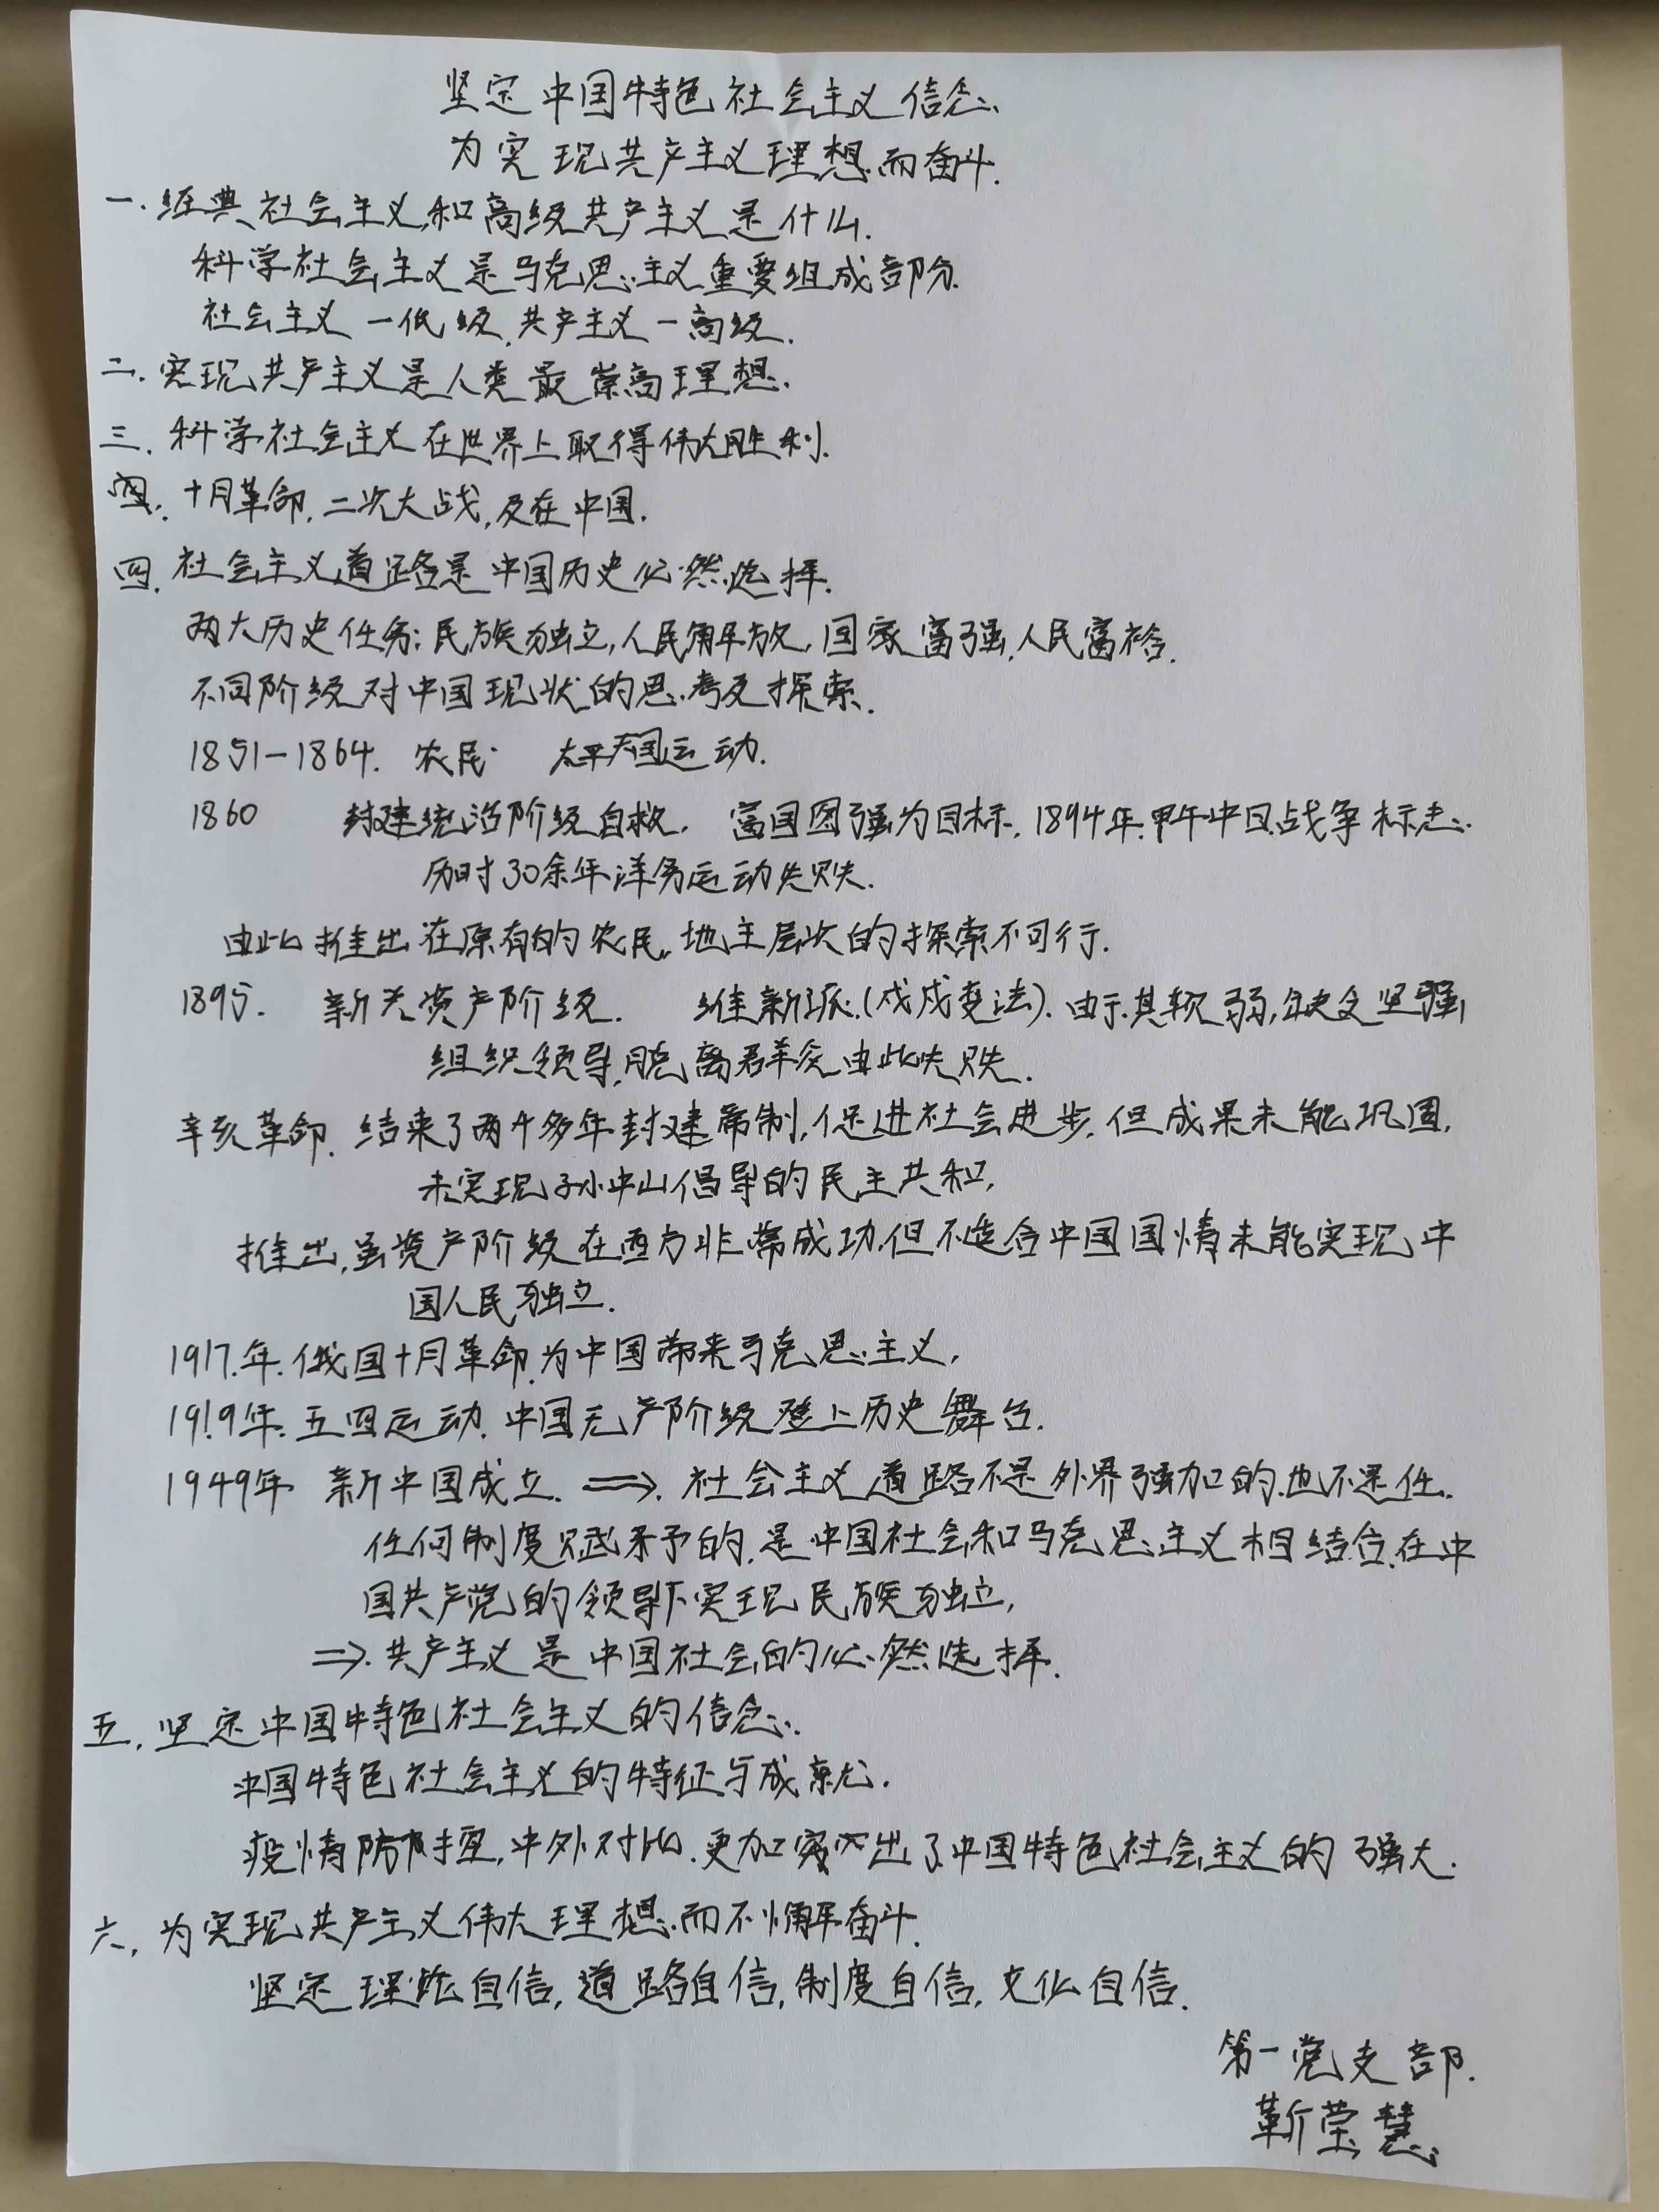 坚定中国特色社会主义信念、
为实现共产主义理想而奋斗.
一.经典社会主义和高级共产主义是什么.
科学社会主义是马克思主义重要组成部分.
社会主义一低级,共产主义一高级.
二.实现共产主义是人类最崇高理想.
三.科学社会主义在世界上取得伟大胜利.
十月革命,二次大战,及在中国.
四.社会主义道路是中国历史必然选择.
两大历史任务:民族独立,人民解放,国家富强,人民富裕.
不同阶级对中国现状的思考及探索.
1851-1864. 农民 太平天国运动.
1860 封建统治阶级自救. 富国图强为目标,1894年.甲午中日战争标志.
历时30余年洋务运动失败.
由此推出在原有的农民,地主层次的探索不可行.
1895. 新式资产阶级. 维新派.(戊戌变法).由于其软弱,缺乏坚强
组织领导,脱离群众由此失败.
辛亥革命.结束了两千多年封建帝制,促进社会进步.但成果未能巩固,
未实现孙中山倡导的民主共和,
推出,虽资产阶级在西方非常成功,但不适合中国国情未能实现中
国人民独立.
1917.年.俄国十月革命.为中国带来马克思主义,
1919年.五四运动.中国无产阶级登上历史舞台.
1949年 新中国成立. ⟹. 社会主义道路不是外界强加的.也不是任.
任何制度赋予的.是中国社会和马克思主义相结合.在中
国共产党的领导下实现民族独立,
⟹.共产主义是中国社会的必然选择.
五.坚定中国特色社会主义的信念.
中国特色社会主义的特征与成就.
疫情防控,中外对比.更加突出了中国特色社会主义的强大.
六.为实现共产主义伟大理想而不懈奋斗.
坚定理论自信,道路自信,制度自信,文化自信.
第一党支部.
靳莹慧